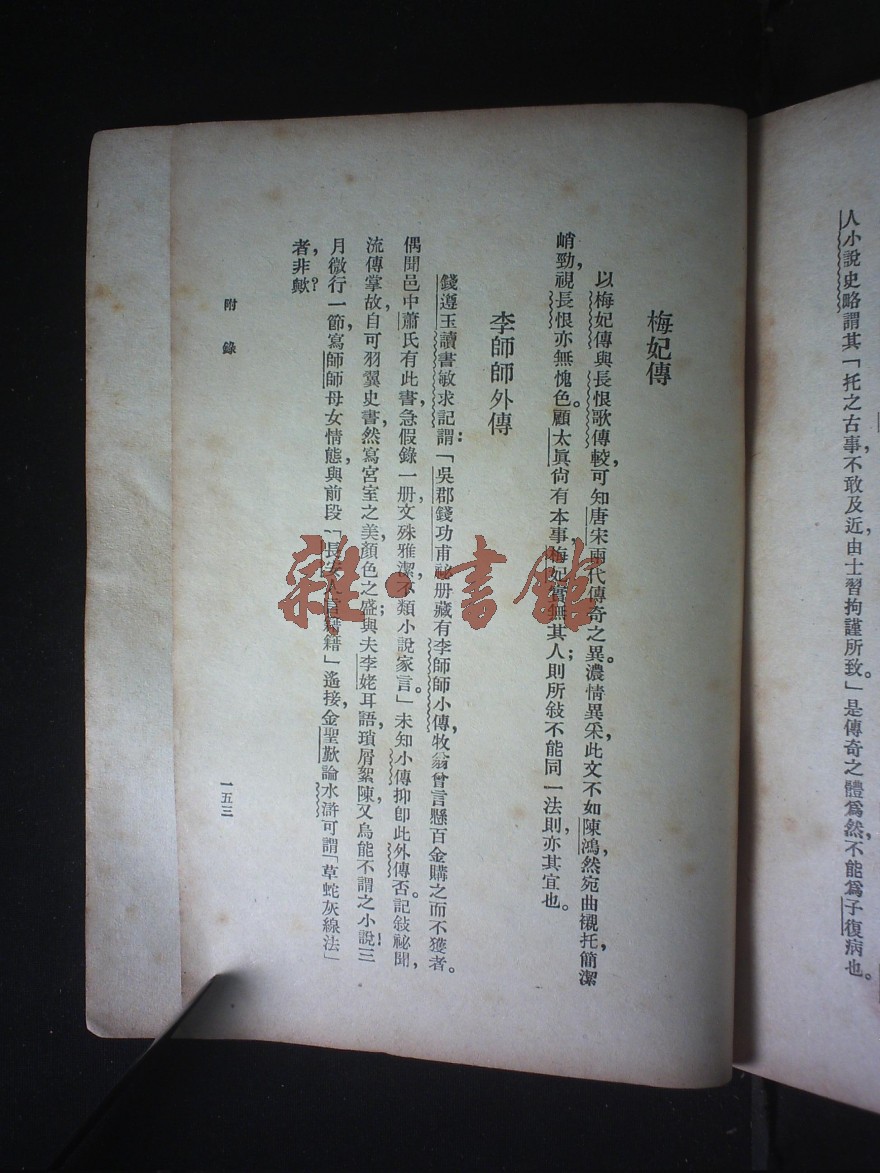 人小說史略謂其「托之古事，不敢及近，由士習拘謹所致。」是傳奇之體爲然，不能爲子復病也。
梅妃傳
以梅妃傳與長恨歌傳較，可知唐宋兩代傳奇之異。濃情異采，此文不如陳鴻，然宛曲襯托，簡潔
峭勁，視長恨亦無愧色。顧太眞尙有本事，梅妃實無其人；則所敍不能同一法則，亦其宜也。
李師師外傳
錢遵王讀書敏求記謂：「吳郡錢功甫祕册藏有李師師小傳，牧翁曾言懸百金購之而不獲者。
偶聞邑中蕭氏有此書，急假錄一册，文殊雅潔，不類小說家言。」未知小傳抑卽此外傳否。記敍祕聞，
流傳掌故，自可羽翼史書，然寫宮室之美，顏色之盛；與夫李姥耳語，瑣屑絮陳，又烏能不謂之小說！三
月微行一節，寫師師母女情態，與前段「長安人言籍籍」遙接，金聖歎論水滸可謂「草蛇灰線法」
者，非歟？
附錄
一五三
雜·書館